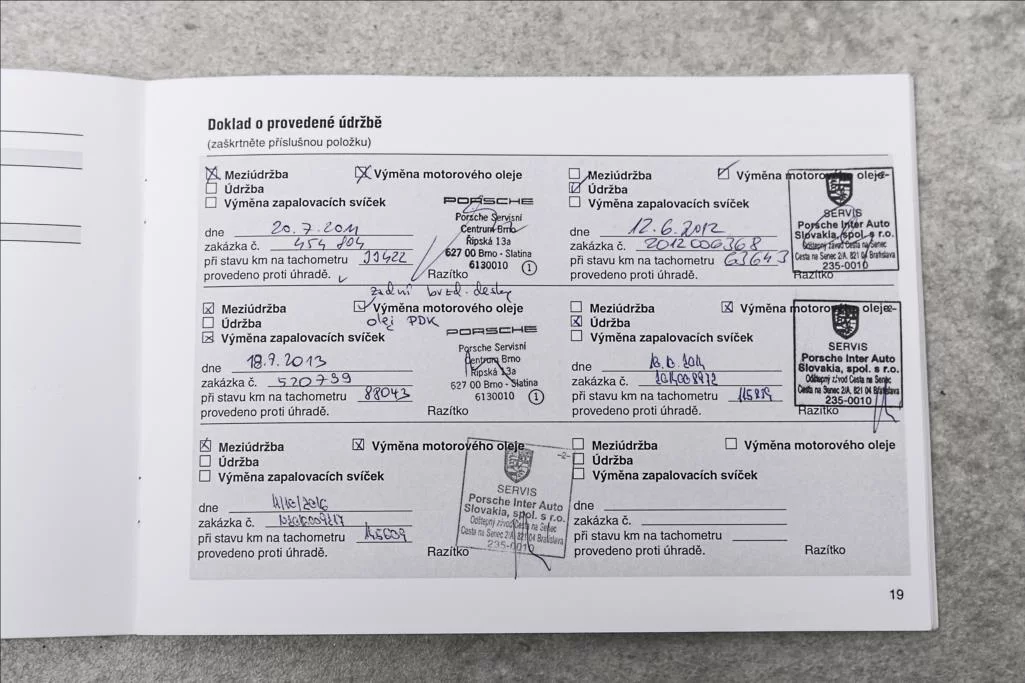 Doklad o provedené údržbě
(zaškrtněte příslušnou položku)
Meziúdržba Výměna motorového oleje
Údržba
Výměna zapalovacích svíček
dne 20.7.2011
zakázka č. 454 804
při stavu km na tachometru 39422
provedeno proti úhradě. Razítko
PORSCHE
Porsche Servisní
Centrum Brno
Řípská 13a
627 00 Brno - Slatina
6130010 1
Meziúdržba Výměna motorového oleje
Údržba
Výměna zapalovacích svíček
dne 12.6.2012
zakázka č. 2012006368
při stavu km na tachometru 63643
provedeno proti úhradě. Razítko
-2-
SERVIS
Porsche Inter Auto
Slovakia, spol. s r.o.
Odštepný závod Cesta na Senec
Cesta na Senec 2/A, 821 04 Bratislava
235-0010
zadní brzd. desky
Meziúdržba Výměna motorového oleje
Údržba olej PDK
Výměna zapalovacích svíček
dne 18.9.2013
zakázka č. 520799
při stavu km na tachometru 88043
provedeno proti úhradě. Razítko
PORSCHE
Porsche Servisní
Centrum Brno
Řípská 13a
627 00 Brno - Slatina
6130010 1
Meziúdržba Výměna motorového oleje
Údržba
Výměna zapalovacích svíček
dne
zakázka č.
při stavu km na tachometru
provedeno proti úhradě. Razítko
-2-
SERVIS
Porsche Inter Auto
Slovakia, spol. s r.o.
Odštepný závod Cesta na Senec
Cesta na Senec 2/A, 821 04 Bratislava
235-0010
Meziúdržba Výměna motorového oleje
Údržba
Výměna zapalovacích svíček
dne
zakázka č.
při stavu km na tachometru 145009
provedeno proti úhradě. Razítko
-2-
SERVIS
Porsche Inter Auto
Slovakia, spol. s r.o.
Odštepný závod Cesta na Senec
Cesta na Senec 2/A, 821 04 Bratislava
235-0010
Meziúdržba Výměna motorového oleje
Údržba
Výměna zapalovacích svíček
dne
zakázka č.
při stavu km na tachometru
provedeno proti úhradě. Razítko
19